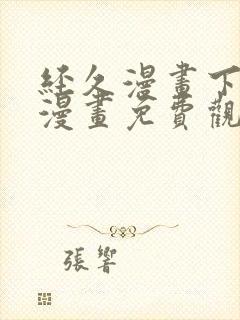 經久漫畫下
漫畫免費觀
張響